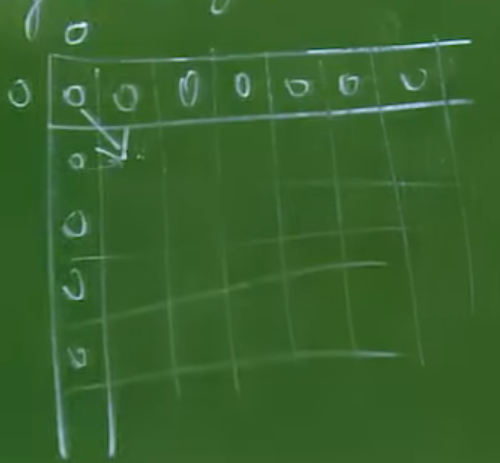 0
0 0 0 0 0 0 0 0
0
0
0
0